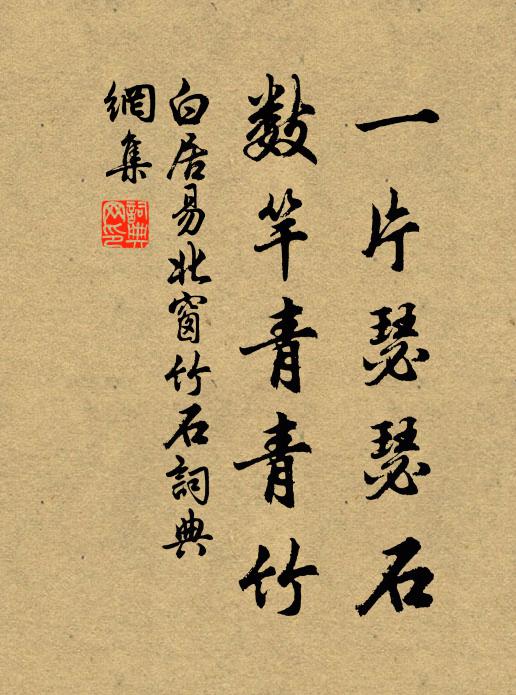 一片瑟瑟石
数竿青青竹
白居易北窗竹石詞典
網集
詞典
网印